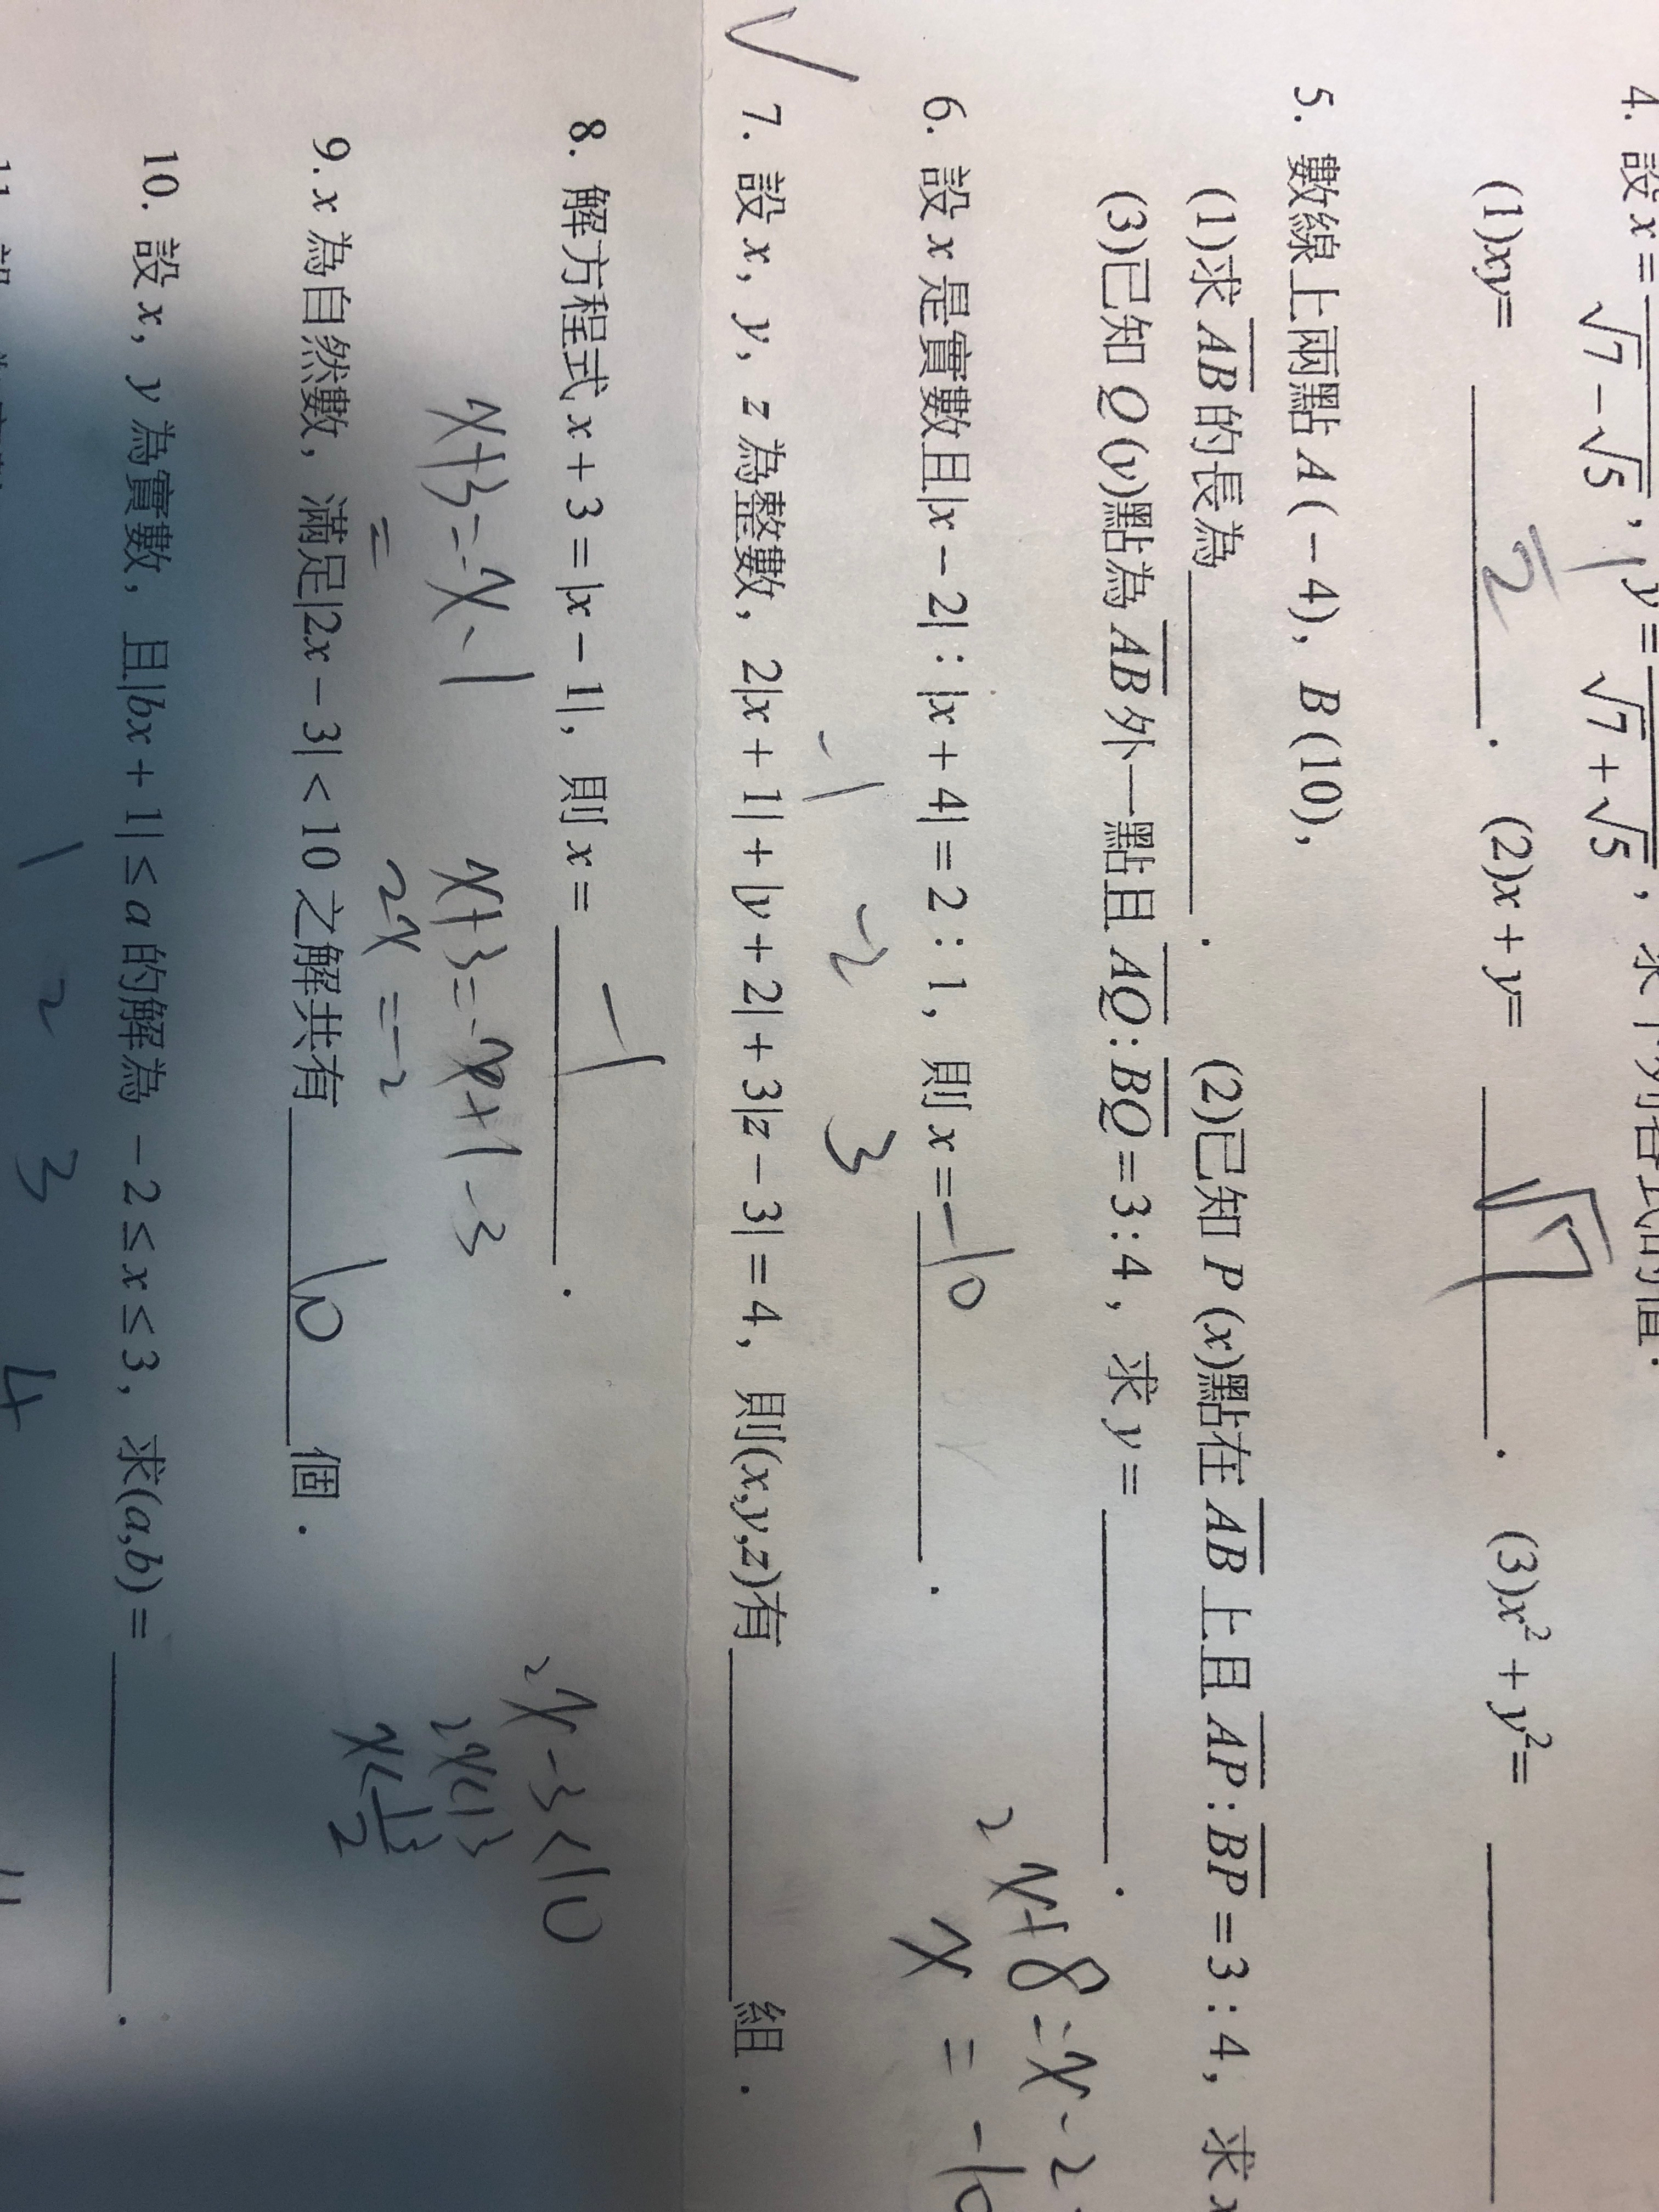 4. 設 x = 1/(√7 − √5), y = 1/(√7 + √5), 求下列各式的值.
(1)xy= ______. (2)x + y= ______. (3)x² + y²= ______
1/2
√7
5. 數線上兩點 A ( − 4), B (10),
(1)求 AB 的長為 ______. (2)已知 P (x)點在 AB 上且 AP : BP = 3 : 4, 求 x
(3)已知 Q (y)點為 AB 外一點且 AQ : BQ = 3 : 4, 求 y = ______.
2x+8=x-2
x = -10
6. 設 x 是實數且|x − 2| : |x + 4| = 2 : 1, 則 x = -10.
-1 -2 3
7. 設 x, y, z 為整數, 2|x + 1| + |y + 2| + 3|z − 3| = 4, 則(x,y,z)有 ______ 組.
8. 解方程式 x + 3 = |x − 1|, 則 x = -1.
x+3=x-1
=
x+3=-x+1-3
2x=-2
2x-3<10
2x<13
x<13/2
9. x 為自然數, 滿足|2x − 3| < 10 之解共有 10 個.
10. 設 x, y 為實數, 且|bx + 1| ≤ a 的解為 − 2 ≤ x ≤ 3, 求(a,b) = ______.
1 2 3 4
11. 設